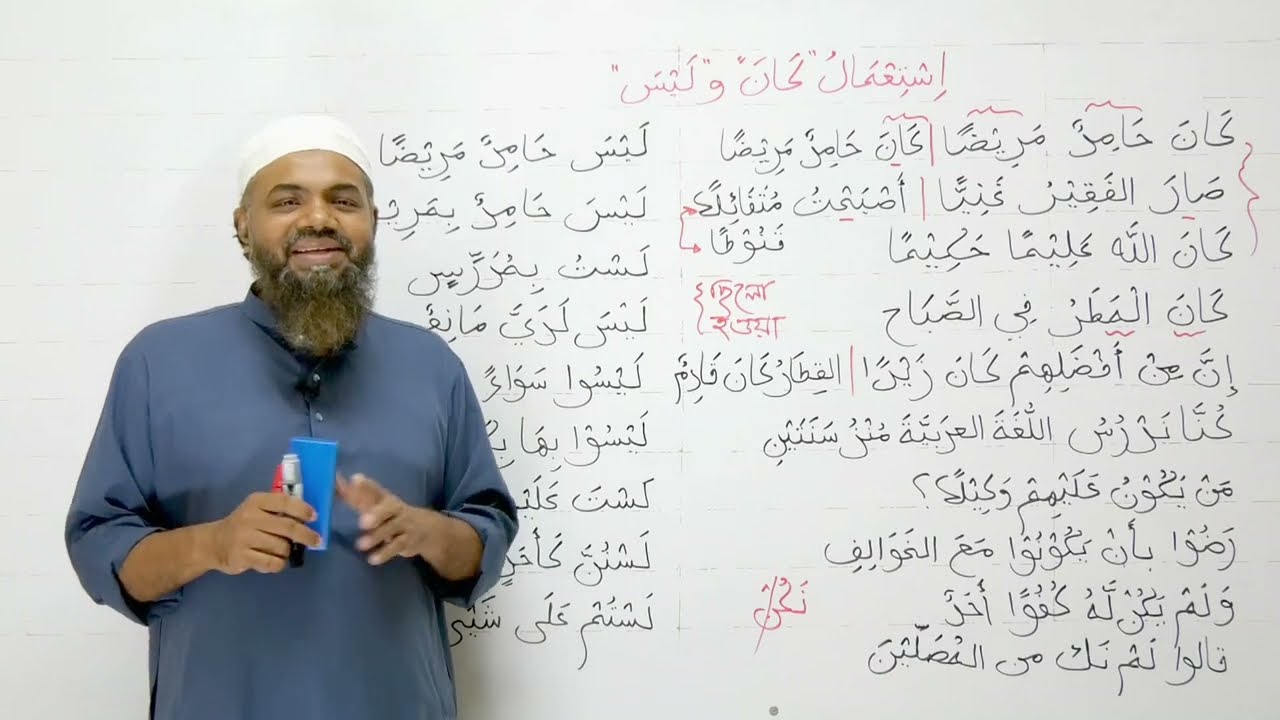 اِسْتِعْمَالُ "كَانَ" و "لَيْسَ"
كَانَ حَامِدٌ مَرِيْضًا | كَانَ حَامِدٌ مَرِيْضًا
صَارَ الفَقِيْرُ غَنِيًّا | أَصْبَحْتُ مُتَفَائِلًا
قَنُوْطًا
كَانَ اللّٰه عَلِيْمًا حَكِيْمًا
ছিলো
হওয়া
كَانَ الْمَطَرُ فِي الصَّبَاح
إِنَّ مِنْ أَفْضَلِهِمْ كَانَ زَيْدًا | القِطَارُ كَانَ قَادِمٌ
كُنَّا نَدْرُسُ اللُّغَةَ العَرَبِيَّةَ مُنْذُ سَنَتَيْنِ
مَنْ يَكُوْنُ عَلَيْهِمْ وَكِيْلًا؟
رَضُوْا بِأَنْ يَكُوْنُوْا مَعَ الخَوَالِفِ
وَلَمْ يَكُنْ لَّهُ كُفُوًا أَحَدٌ
نَكُنْ
قالوا لَمْ نَكُ من المُصَلِّيْنَ
لَيْسَ حَامِدٌ مَرِيْضًا
لَيْسَ حَامِدٌ
لَسْتُ بِمُدَرِّسٍ
لَيْسَ لَدَيَّ مَانِعٌ
لَيْسُوا سَوَاءً
لَيْسُوْا بِهَا
لَسْتَ
لَسْتُنَّ كَأَحَدٍ
لَسْتُمْ عَلَى شَيْءٍ